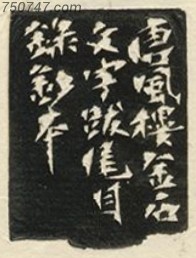 750747.com
唐風樓金石
文字跋尾目
錄鈔本